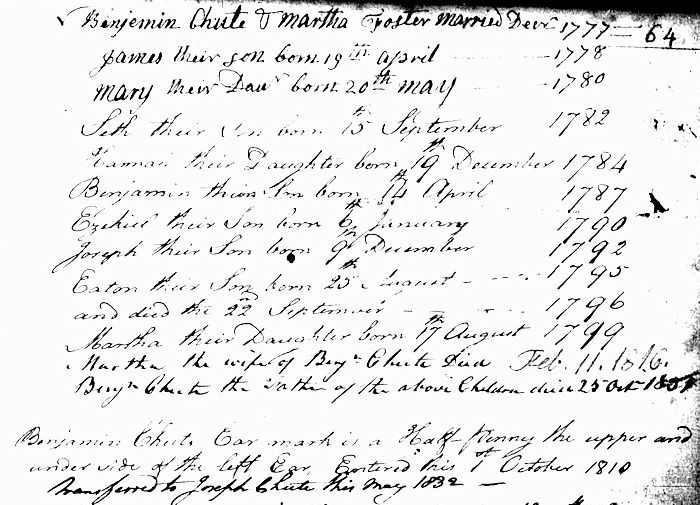 Benjemin Chute & Martha Foster married Decr 1777 — 64
James their son born 19th april 1778
mary their Daur born 20th may 1780
Seth their Son born 15th September 1782
Hannah their Daughter born 19th December 1784
Benjamin their Son born 14th April 1787
Ezekiel their Son born 6th January 1790
Joseph their Son born 9th December 1792
Eaton their Son born 25th August 1795
and died the 22nd September 1796
Martha their Daughter born 17th August 1799
Martha the wife of Benjn Chute Died Feb. 11. 1816.
Benjn Chute the Father of the above Children died 25 Oct
Benjamin Chute Ear mark is a Half-penny the upper and
under side of the left Ear, Entered this 1st October 1810
transferred to Joseph Chute this May 1832 —